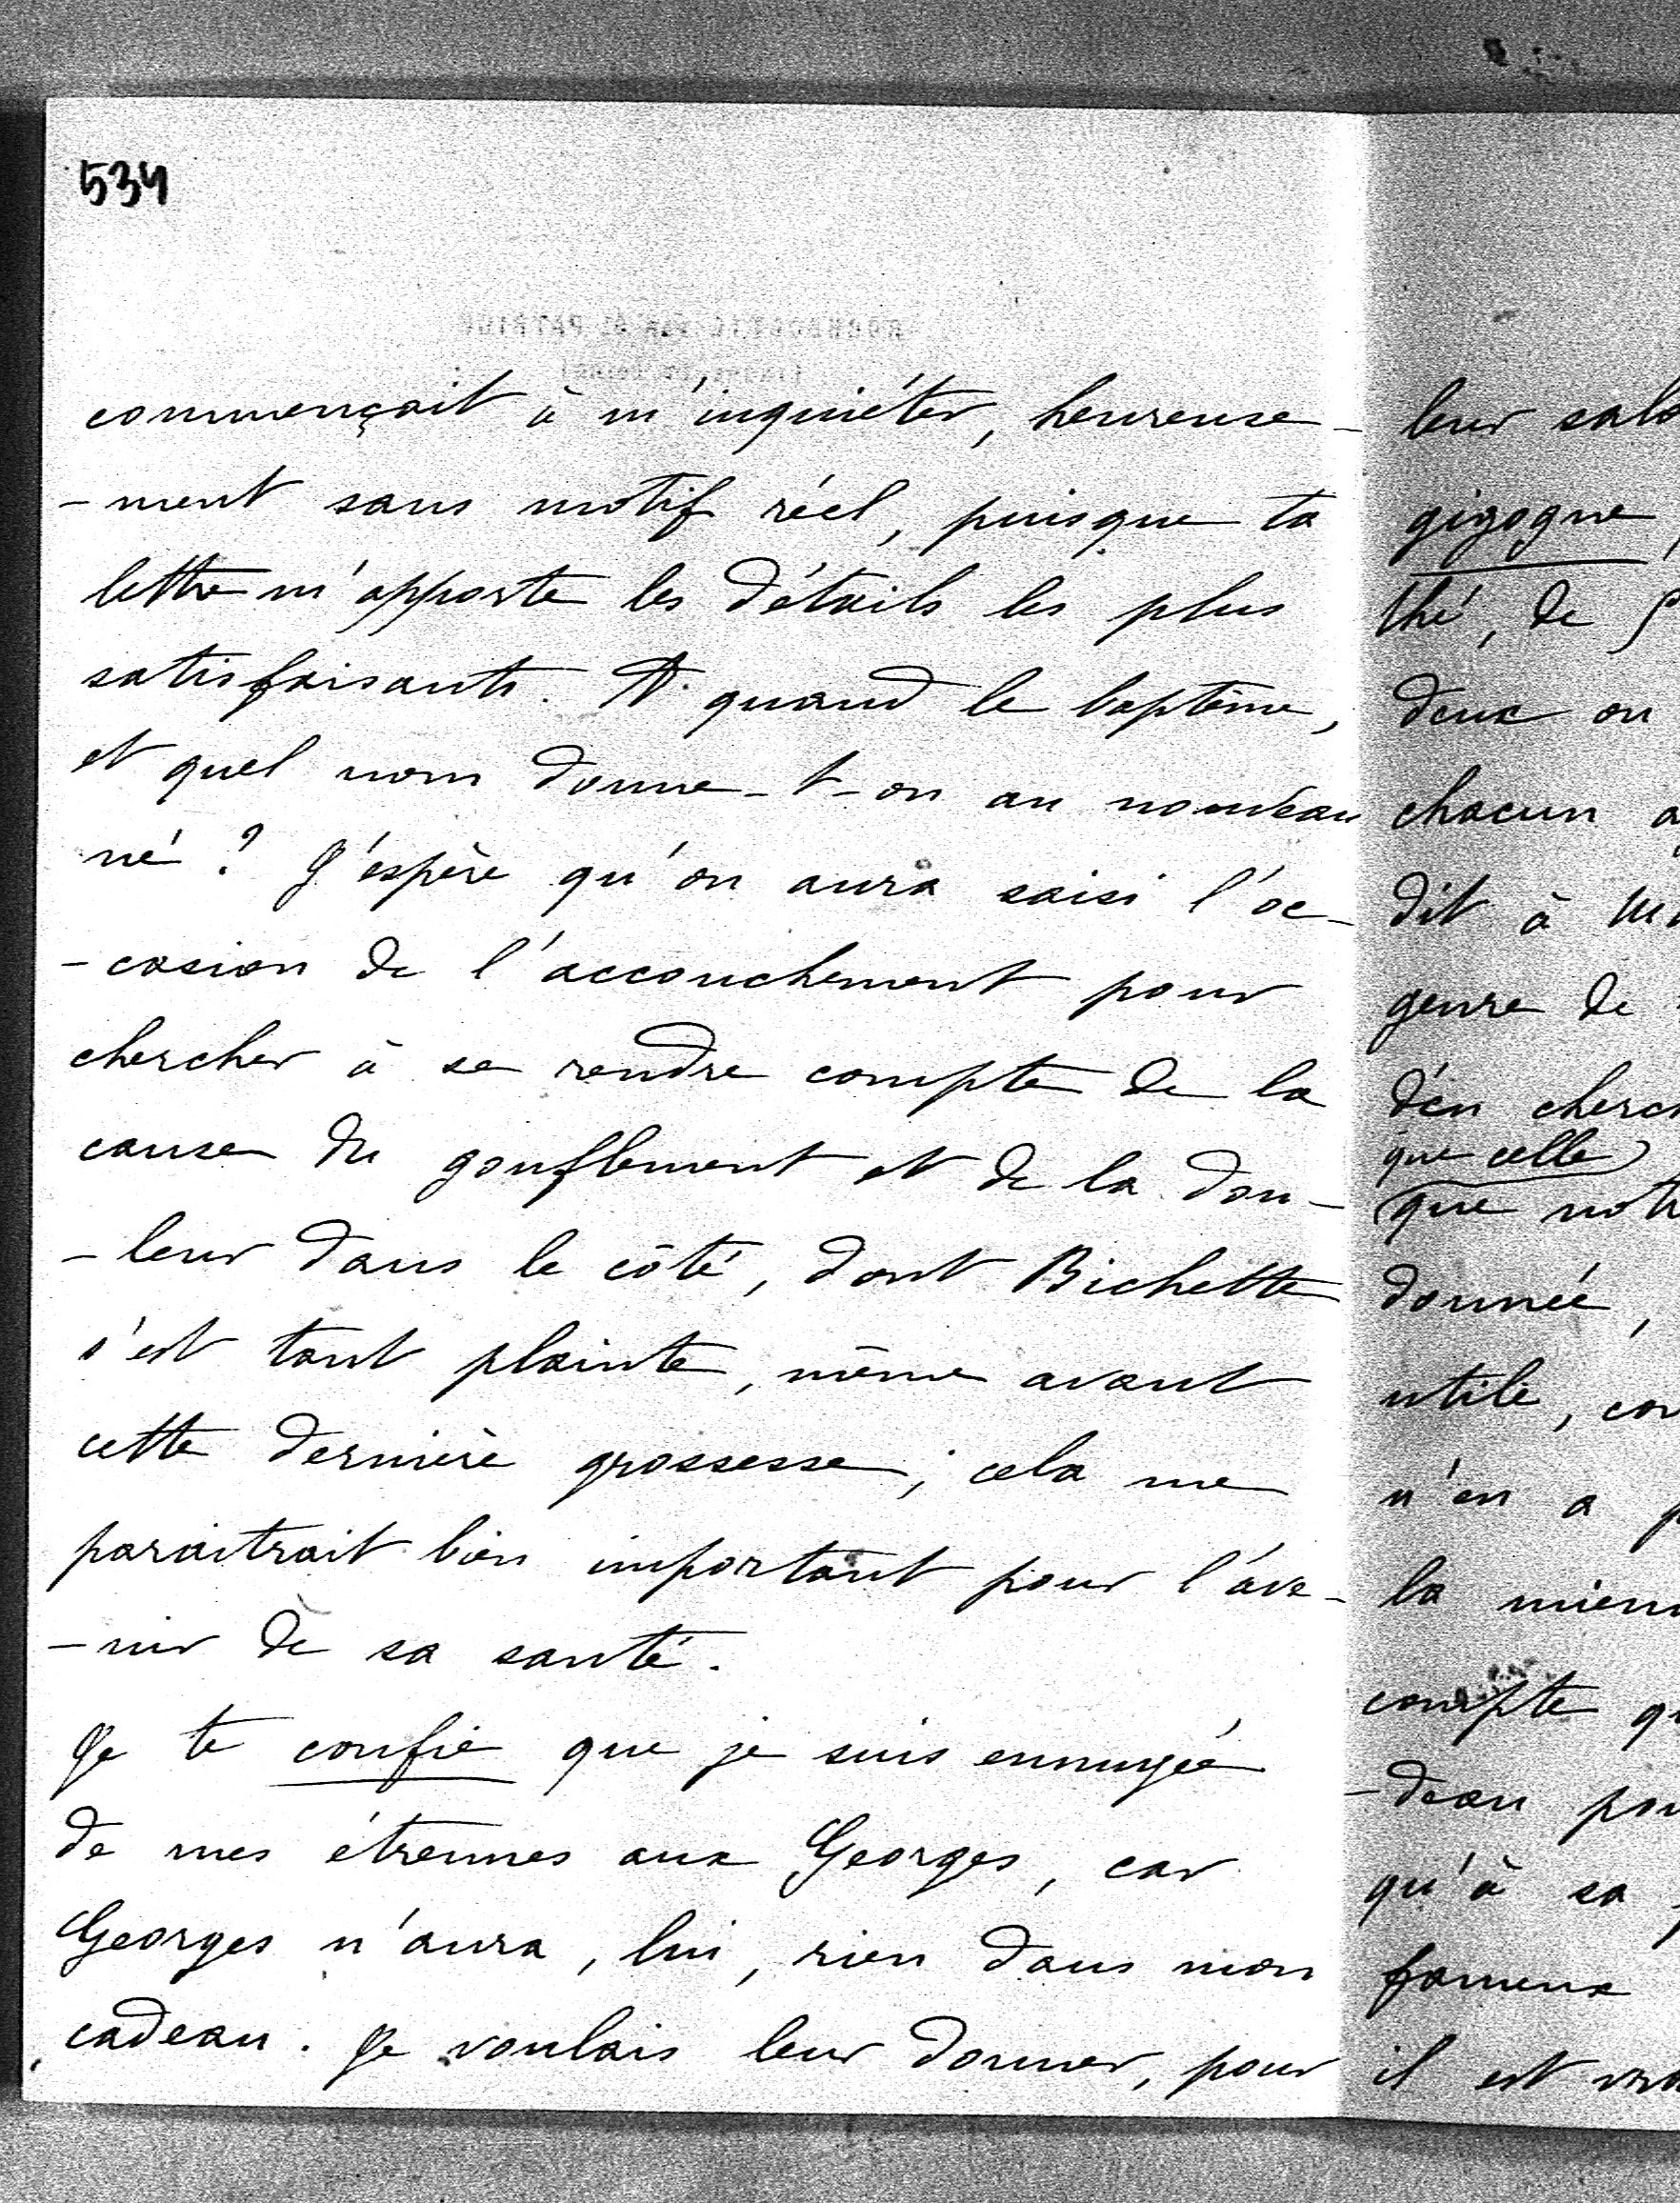 534
commençait à m'inquiéter, heureuse-
-ment sans motif réel, puisque ta
lettre m'apporte les détails les plus
satisfaisants. A quand le baptême,
et quel nom donne-t-on au nouveau
né ? J'espère qu'on aura saisi l'oc-
-casion de l'accouchement pour
chercher à se rendre compte de la
cause du gonflement et de la dou-
-leur dans le côté, dont Bichette
s'est tant plainte, même avant
cette dernière grossesse ; cela me
paraitrait bien important pour l'ave-
-nir de sa santé.
Je te confie que je suis ennuyée
de mes étrennes aux Georges, car
Georges n'aura, lui, rien dans mon
cadeau. Je voulais leur donner, pour
leur
gigogne
thé, de
deux ou
chacun
dit à
genre de
d'en
que celle
que
donnée,
utile,
n'en a
la
compte
-deau
qu'à sa
fameux
il est